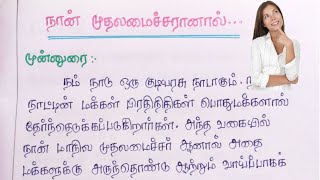 நான் முதலமைச்சரானால்...
முன்னுரை :-
நம் நாடு ஒரு குடியரசு நாடாகும். ந
நாட்டின் மக்கள் பிரதிநிதிகள் பொதுமக்களால்
தேர்ந்தெடுக்கப்படுகிறார்கள். அந்த வகையில்
நான் மாநில முதலமைச்சர் ஆனால் அதை
மக்களுக்கு அருந்தொண்டு ஆற்றும் வாய்ப்பாகக்